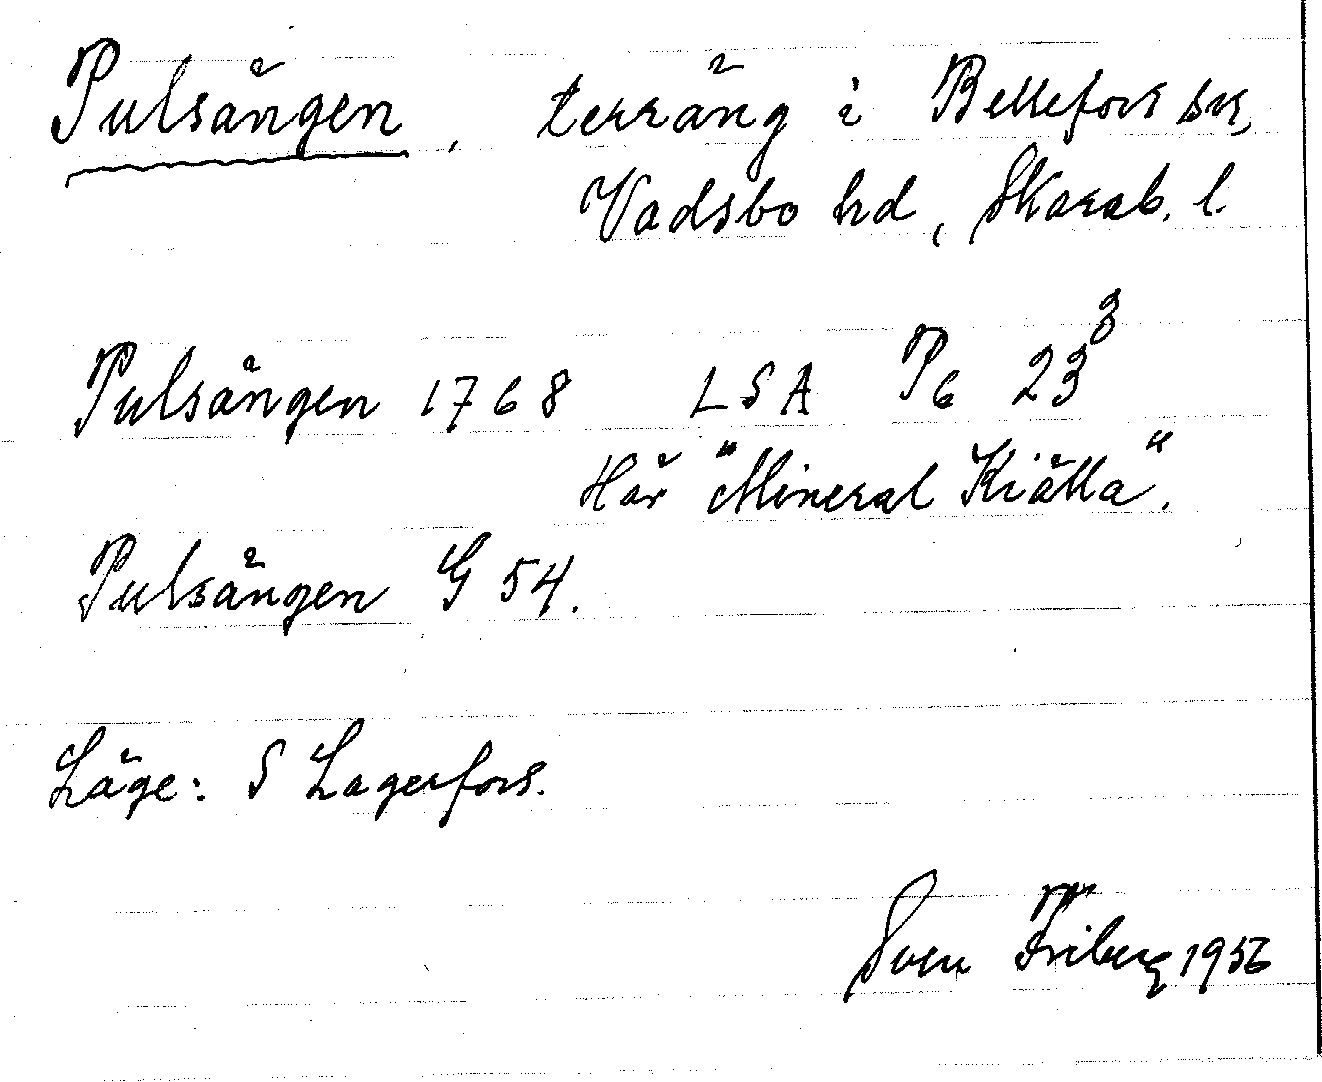 Pulsängen, terräng i Bellefors sn,
Vadsbo hd, Skarab. l.
Pulsängen 1768 LSA P6 23³
Här "Mineral Kiälla".
Pulsängen G 54.
Läge: S Lagerfors.
Sven Friberg 1956